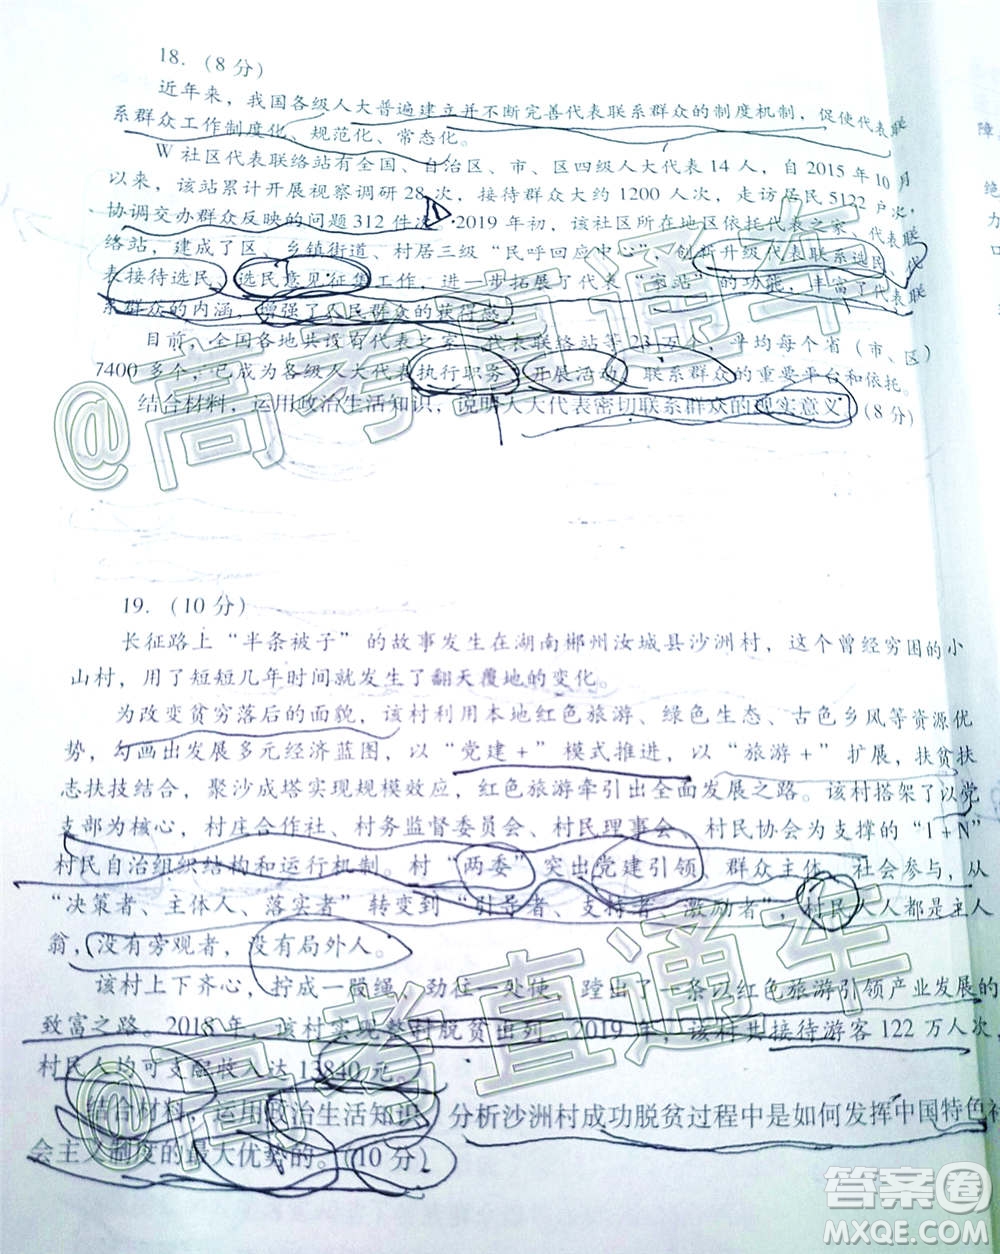 18. (8 分)
近年来，我国各级人大普遍建立并不断完善代表联系群众的制度机制，促使代表联
系群众工作制度化、规范化、常态化。
W 社区代表联络站有全国、自治区、市、区四级人大代表 14 人，自 2015 年 10 月
以来，该站累计开展视察调研 28 次，接待群众大约 1200 人次，走访居民 5122 户次，
协调交办群众反映的问题 312 件次。2019 年初，该社区所在地区依托代表之家、
络站，建成了区、乡镇街道、村居三级“民呼回应中心”，创新升级代表联系选民、代
表接待选民、选民意见征集工作，进一步拓展了代表“家站”的功能，丰富了代表联
系群众的内涵，增强了人民群众的获得感。
目前，全国各地共设有代表之家、代表联络站等 23 万个，平均每个省（市、区）
7400 多个，已成为各级人大代表执行职务、开展活动、联系群众的重要平台和依托。
结合材料，运用政治生活知识，说明人大代表密切联系群众的现实意义。(8 分)
19. (10 分)
长征路上“半条被子”的故事发生在湖南郴州汝城县沙洲村，这个曾经穷困的小
山村，用了短短几年时间就发生了翻天覆地的变化。
为改变贫穷落后的面貌，该村利用本地红色旅游、绿色生态、古色乡风等资源优
势，勾画出发展多元经济蓝图，以“党建＋”模式推进，以“旅游＋”扩展，扶贫扶
志扶技结合，聚沙成塔实现规模效应，红色旅游牵引出全面发展之路。该村搭架了以党
支部为核心，村庄合作社、村务监督委员会、村民理事会、村民协会为支撑的“1＋N”
村民自治组织结构和运行机制。村“两委”突出党建引领、群众主体、社会参与，从
“决策者、主体人、落实者”转变到“引导者、支持者、激励者”，村民人人都是主人
翁，没有旁观者，没有局外人。
该村上下齐心，拧成一股绳，劲往一处使，蹚出了一条以红色旅游引领产业发展的
致富之路。2018 年，该村实现整村脱贫出列。2019 年，该村共接待游客 122 万人次，
村民人均可支配收入达 13840 元。
结合材料，运用政治生活知识，分析沙洲村成功脱贫过程中是如何发挥中国特色社
会主义制度的最大优势的。(10 分)
障
绝
力
@高考直通车
@高考直通车
答案圈
MXQE.COM